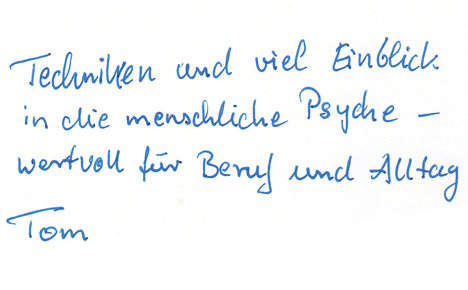 Techniken und viel Einblick
in die menschliche Psyche –
wertvoll für Beruf und Alltag
Tom